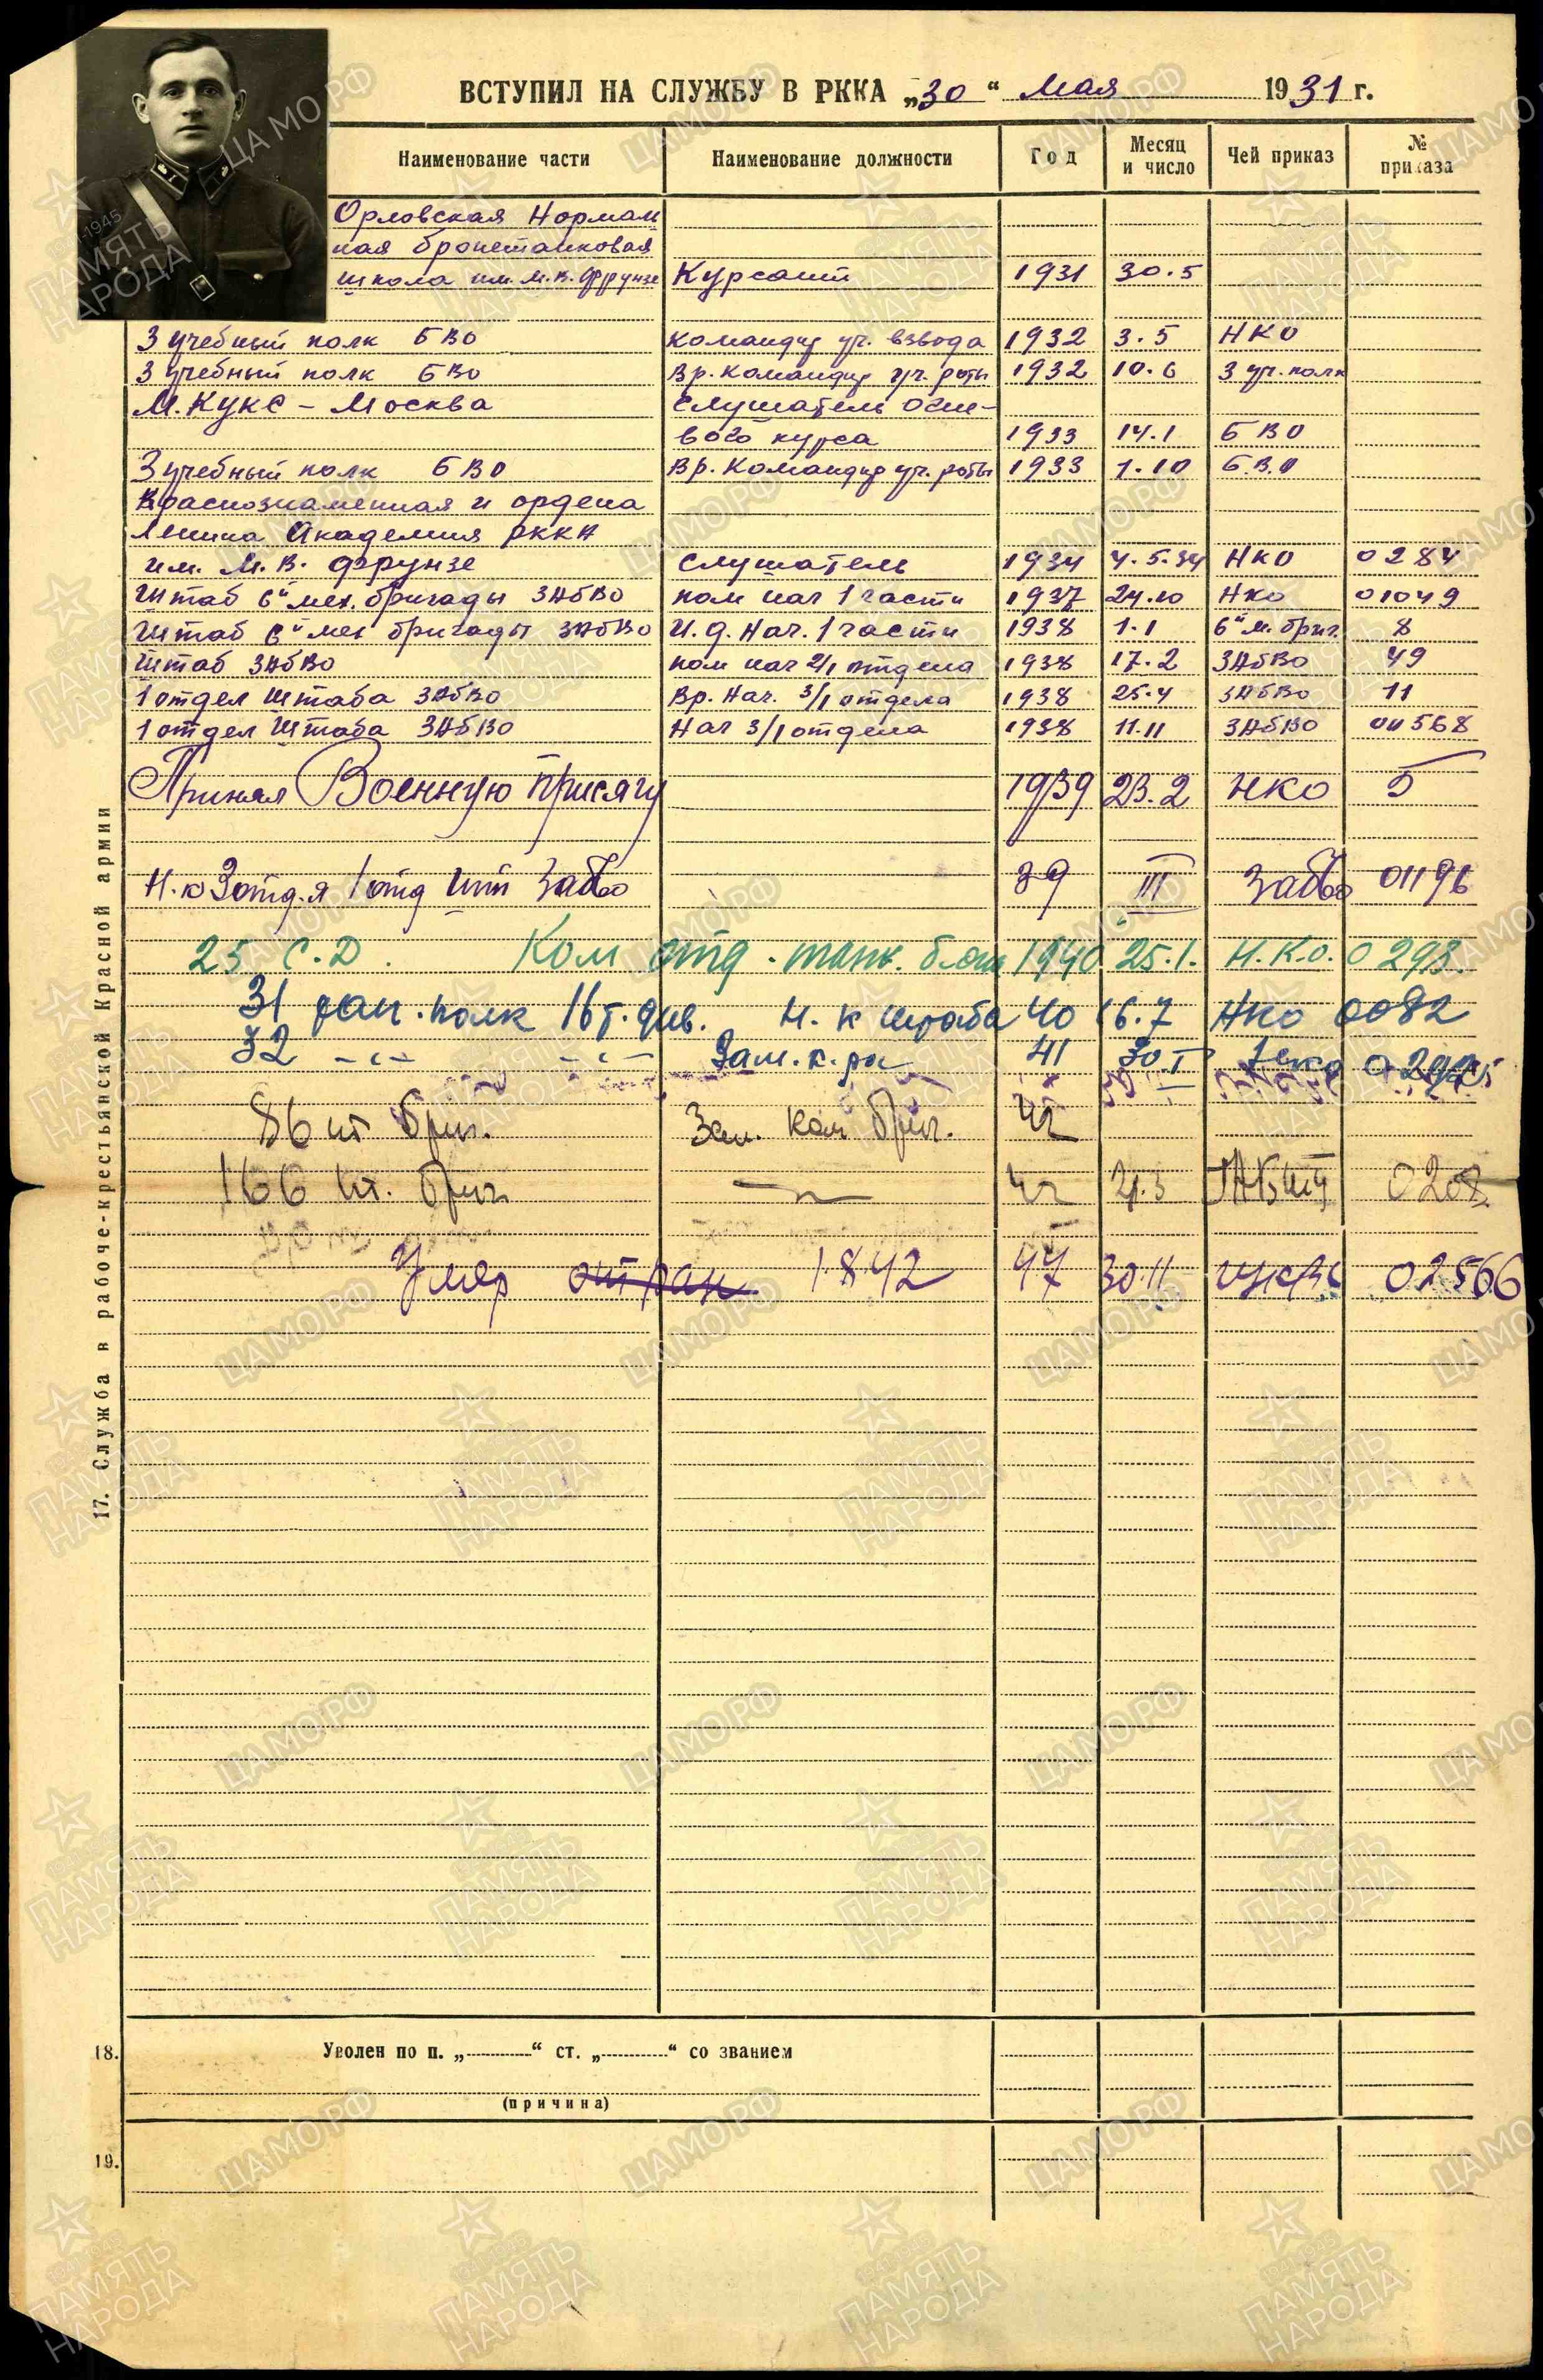 ВСТУПИЛ НА СЛУЖБУ В РККА „30“ Мая 1931 г.
Наименование части Наименование должности Год Месяц и число Чей приказ № приказа
Орловская Нормаль
ная бронетанковая
школа им. М.В. Фрунзе Курсант 1931 30.5
3 учебный полк БВО Командир уч. взвода 1932 3.5 НКО
3 учебный полк БВО Вр. Командир уч. роты 1932 10.6 3 уч. полк
М.КУКС - Москва Слушатель огне-
вого курса 1933 14.1 БВО
3 учебный полк БВО Вр. Командир уч. роты 1933 1.10 Б.В.О
Краснознаменная и ордена
Ленина Академия РККА
им. М.В. Фрунзе Слушатель 1934 4.5.34 НКО 0284
Штаб 6й мех. бригады ЗАБВО пом нач 1 части 1937 24.10 НКО 01049
Штаб 6й мех бригады ЗАБВО И.д. Нач. 1 части 1938 1.1 6й м. бриг. 8
Штаб ЗАБВО пом нач 2/1 отдела 1938 17.2 ЗАБВО 49
1 отдел Штаба ЗАБВО Вр. Нач. 3/1 отдела 1938 25.4 ЗАБВО 11
1 отдел Штаба ЗАБВО Нач 3/1 отдела 1938 11.11 ЗАБВО 00568
Принял Военную присягу 1939 23.2 НКО 5
Н-к 3 отд-я 1 отд шт ЗабВо 39 III ЗабВо 01196
25 С.Д. Ком отд. танк. бат 1940 25.1. Н.К.О. 0298.
31 тан. полк 16 т. див. Н-к штаба 40 16.7 НКО 0082
32 -"- -"- Зам. к-ра 41 30.I НКО
86 тт бриг. Зам. Ком бриг. 42
166 тт. бриг. -"- 42 0208
Умер от ран 1.8.42 47 30.11 02566
17. Служба в рабоче-крестьянской Красной армии
18. Уволен по п. „ “ ст. „ “ со званием
(причина)
19.
ЦАМО.РФ
1941-1945
ПАМЯТЬ
НАРОДА